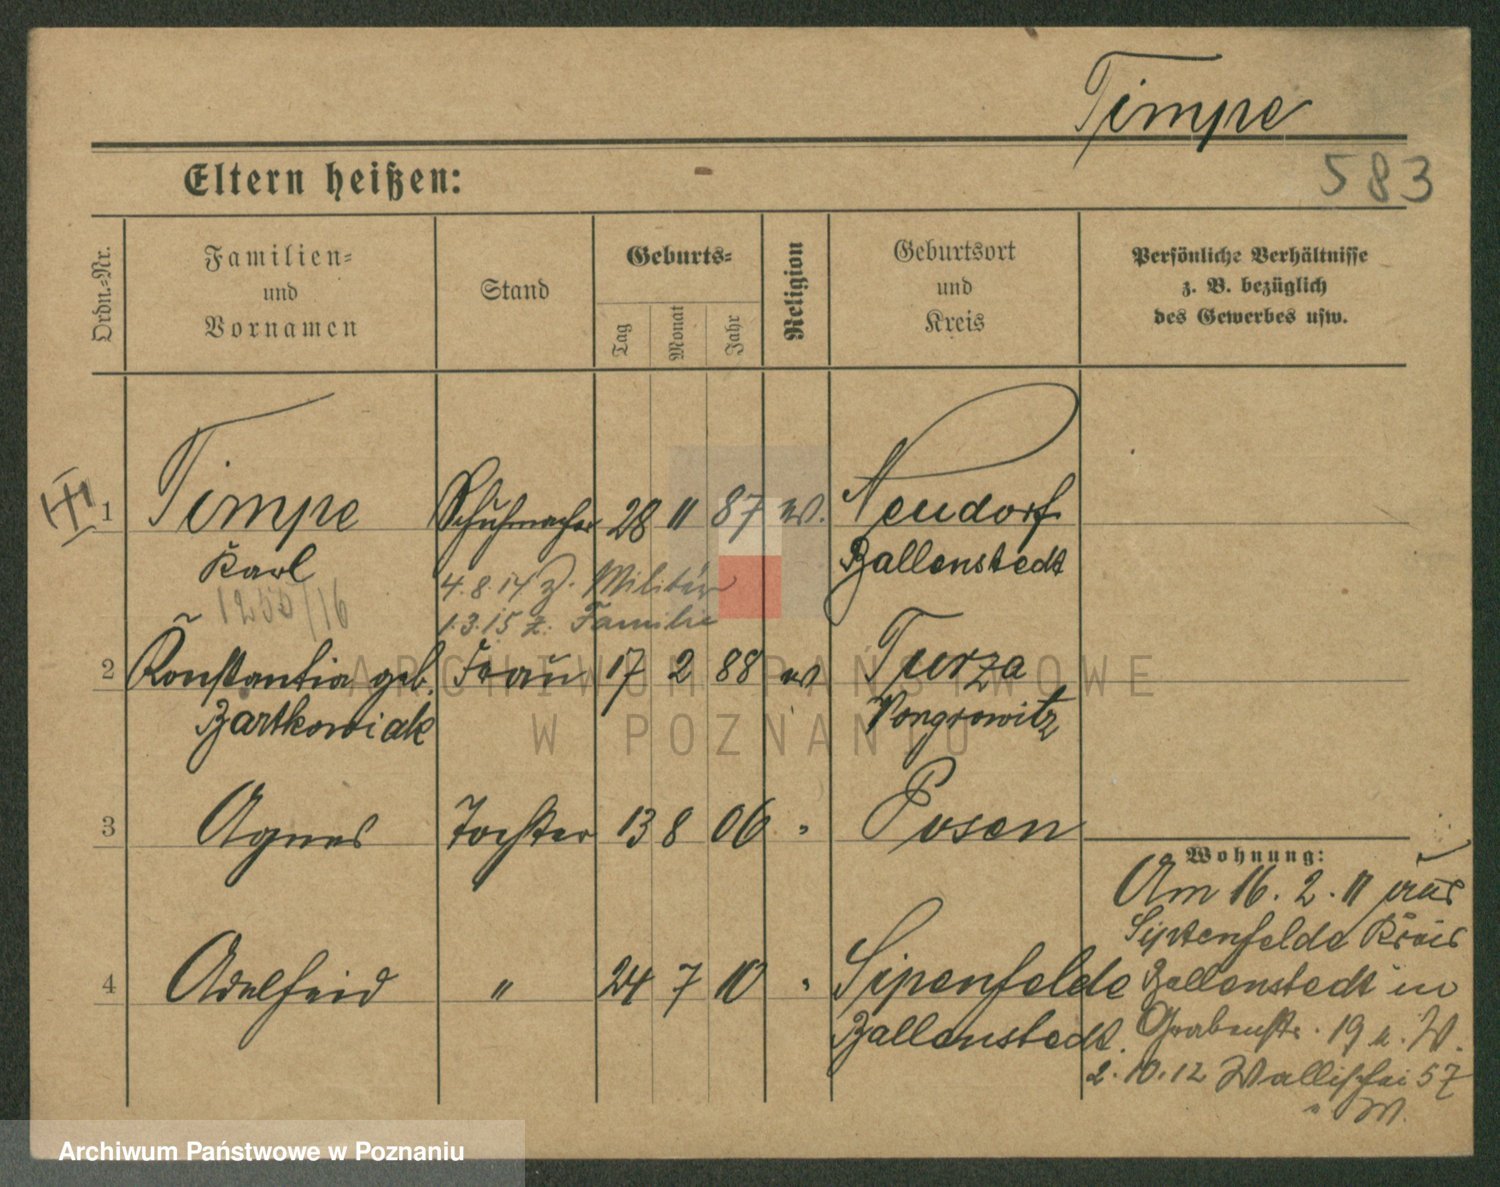 Timpe
583
Eltern heißen:
Ordn.-Nr.
Familien-
und
Vornamen
Stand
Geburts-
Tag
Monat
Jahr
Religion
Geburtsort
und
Kreis
Persönliche Verhältnisse
z. B. bezüglich
des Gewerbes usw.
1 Timpe Schuhmacher 28 11 87 Neudorf
Karl Ballenstedt
4.8.14 z. Militär
1250/16
1.3.15 z. Familie
2 Konstantia geb. Frau 17 2 88 Turza
Bartkowiak Wongrowitz
3 Agnes Tochter 13 8 06 " Posen
Wohnung:
Am 16. 2. 11 aus
Siptenfelde Kreis
4 Adelheid " 24 7 10 " Sipenfelde
Ballenstedt in
Ballenstedt.
Grabenstr. 19 a. W.
2.10.12 Wallischei 57
" W.
ARCHIWUM PAŃSTWOWE
W POZNANIU
Archiwum Państwowe w Poznaniu